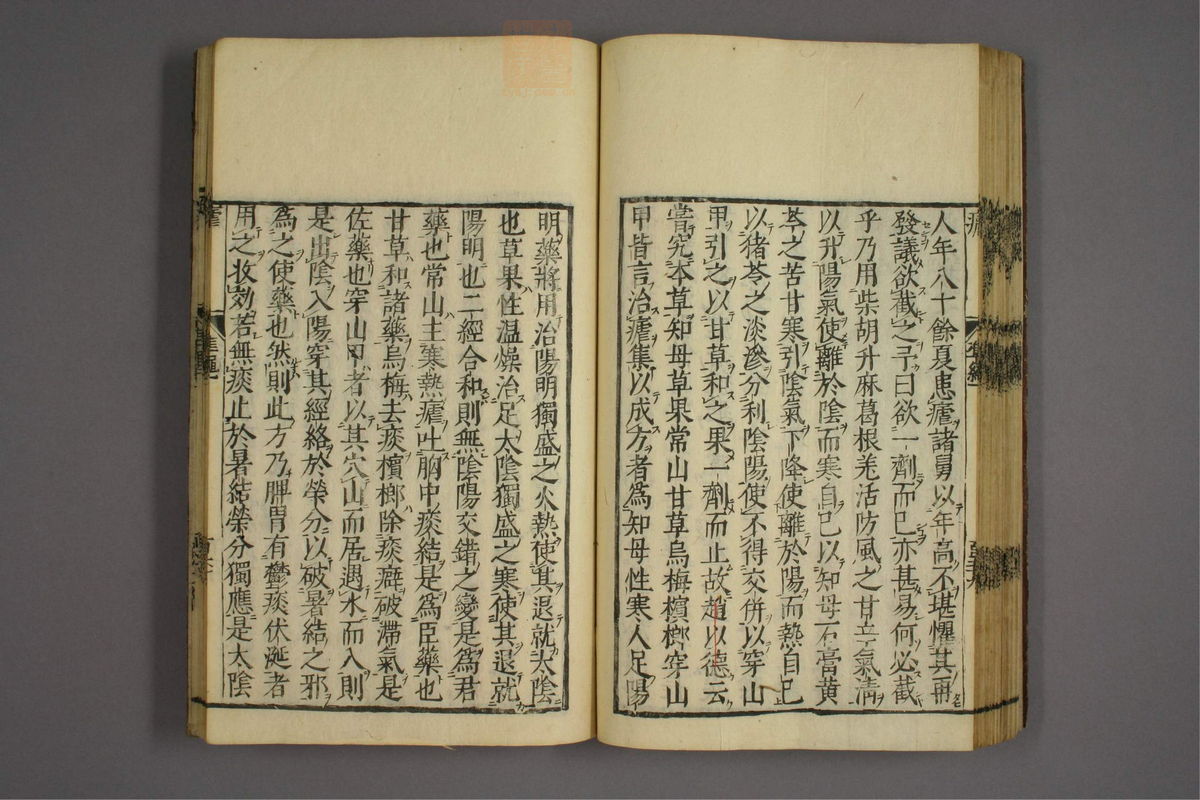 人年八十餘夏患瘧諸舅以年高不堪懼其再
發議欲截之予曰欲一劑而已亦甚易何必截
乎乃用柴胡升麻葛根羌活防風之甘辛氣清
以升陽氣使離於陰而寒自已以知母石膏黃
芩之苦甘寒引陰氣下降使離於陽而熱自已
以猪苓之淡滲分利陰陽使不得交併以穿山
甲引之以甘草和之果一劑而止故趙以德云
嘗究本草知母草果常山甘草烏梅檳榔穿山
甲皆言治瘧集以成方者爲知母性寒入足陽
明藥將用治陽明獨盛之火熱使其退就太陰
也草果性溫燥治足太陰獨盛之寒使其退就
陽明也二經合和則無陰陽交錯之變是爲君
藥也常山主寒熱瘧吐胸中痰結是爲臣藥也
甘草和諸藥烏梅去痰檳榔除痰癖破滯氣是
佐藥也穿山甲者以其穴山而居遇水而入則
是出陰入陽穿其經絡於榮分以破暑結之邪
為之使藥也然則此方乃脾胃有鬱痰伏涎者
用之收効若無痰止於暑結榮分獨應是太陰